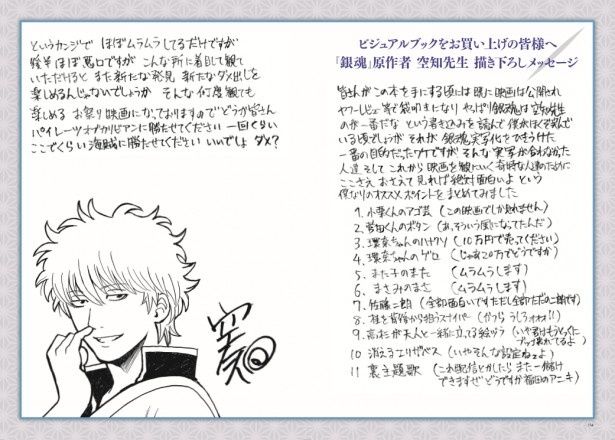 ビジュアルブックをお買い上げの皆様へ
『銀魂』原作者 空知先生 描き下ろしメッセージ
皆さんがこの本を手にする頃には既に映画は公開され
ヤフーレビュー等で袋叩きになり やっぱり銀魂は空知先生
のが一番だな という書き込みを読んで 僕がほくそ笑んで
いる頃でしょうが それが銀魂実写化をやろうけた
一番の目的だったワケですが そんな実写が合わなかった
人達 そして これから映画を観にいく奇特な人達のために
ここさえおさえて見れば絶対面白いよ という
僕なりのオススメポイントをまとめてみました
1. 小栗くんのアゴ芸 (この映画でしか見れません)
2. 菅田くんのボタン (あ、そういう風になってたんだ)
3. 環奈ちゃんのハナクソ (10万円で売ってください)
4. 環奈ちゃんのゲロ (じゃあ20万でどうですか)
5. また子のまた (ムラムラします)
6. まさみのまさ (ムラムラします)
7. 佐藤二朗 (全部面白いです ただし全部ただの二朗です)
8. 桂を背後から狙うスナイパー (かつら うしろォォォ!!)
9. 高杉が夫人と一緒に立てる絵ヅラ (いや君はもうとっくに
ブッ壊れてるよ)
10 消えるエリザベス (いやそんな設定ねェよ)
11 裏主題歌 (これ配信とかしたら また一儲け
できますぜ どうですか 福田のアニキ)
というカンジで ほぼムラムラしてるだけですが
後半ほぼ悪口ですが こんな所に着目して観て
いただけると また新たな発見 新たなダメ出しを
楽しめるんじゃないでしょうか そんな何度観ても
楽しめる お祭り映画になっておりますので どうか皆さん
パイレーツオブカリビアンに勝たせてください 一回くらい
ここでくらい海賊に勝たせてください いいでしょ ダメ?
空知